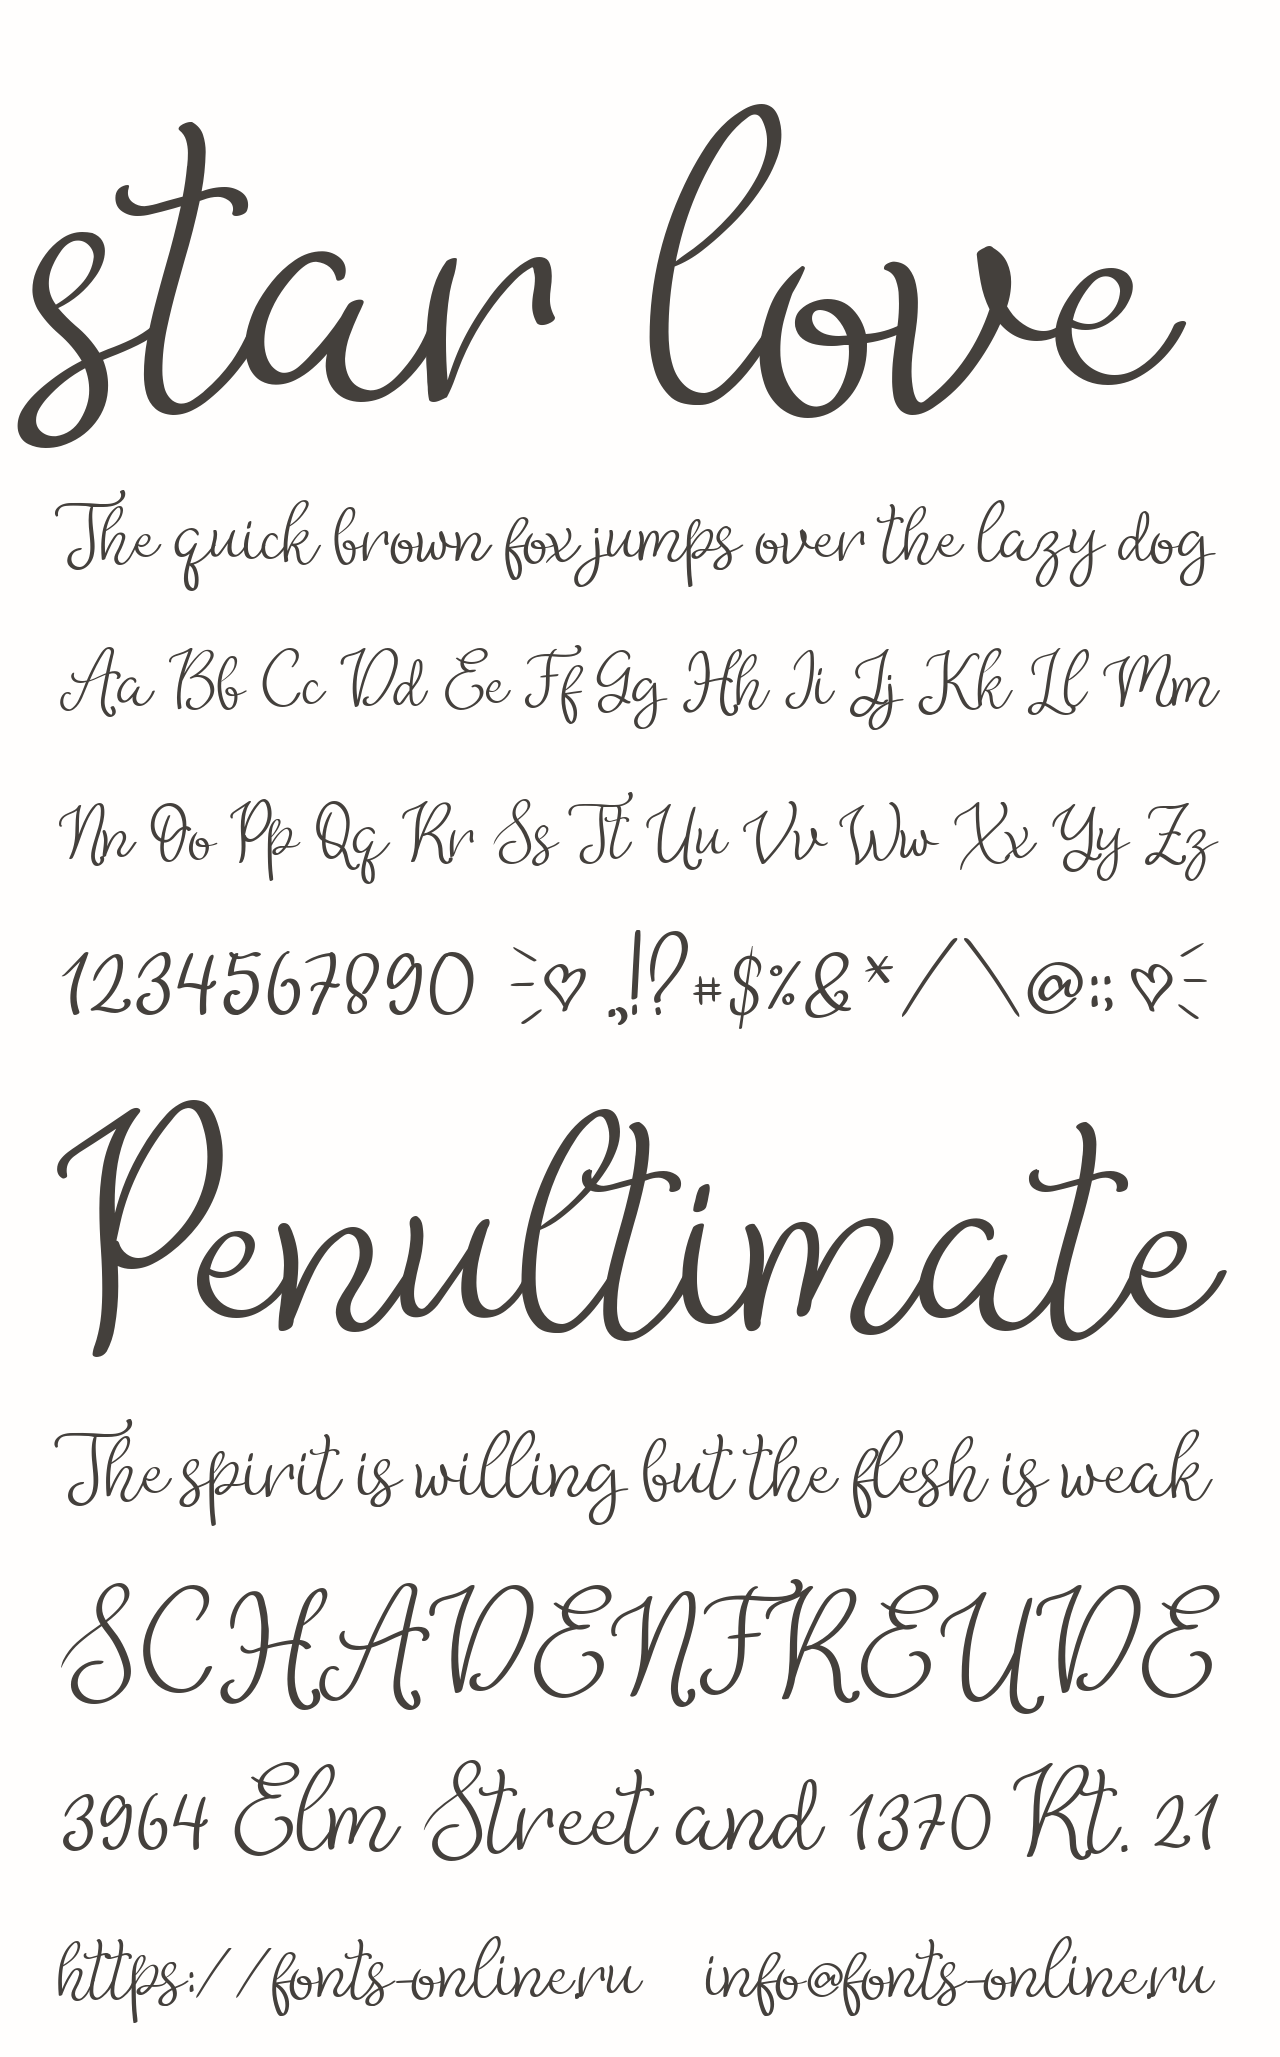 star love
The quick brown fox jumps over the lazy dog
Aa Bb Cc Dd Ee Ff Gg Hh Ii Jj Kk Ll Mm
Nn Oo Pp Qq Rr Ss Tt Uu Vv Ww Xx Yy Zz
1234567890 ♡ .,!?#$%&*/\@:; ♡
Penultimate
The spirit is willing but the flesh is weak
SCHADENFREUDE
3964 Elm Street and 1370 Rt. 21
https://fonts-online.ru info@fonts-online.ru